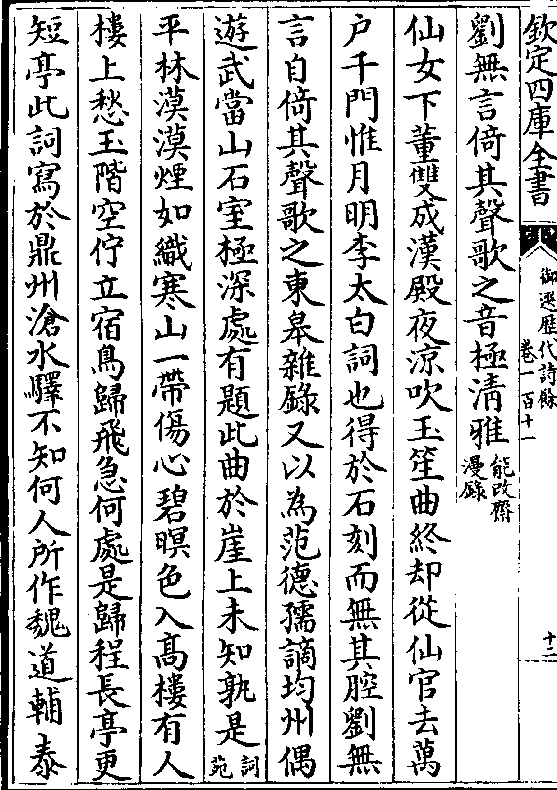 欽定四庫全書
御選歷代詩餘
卷一百十一
十二
劉無言倚其聲歌之音極清雅能改齋漫錄
仙女下董雙成漢殿夜凉吹玉笙曲終却從仙官去萬
户千門惟月明李太白詞也得於石刻而無其腔劉無
言自倚其聲歌之東皋雜錄又以為范德孺謫均州偶
遊武當山石室極深處有題此曲於崖上未知孰是詞苑
平林漠漠煙如織寒山一帶傷心碧暝色入髙樓有人
樓上愁玉階空佇立宿鳥歸飛急何處是歸程長亭更
短亭此詞寫於鼎州滄水驛不知何人所作魏道輔泰